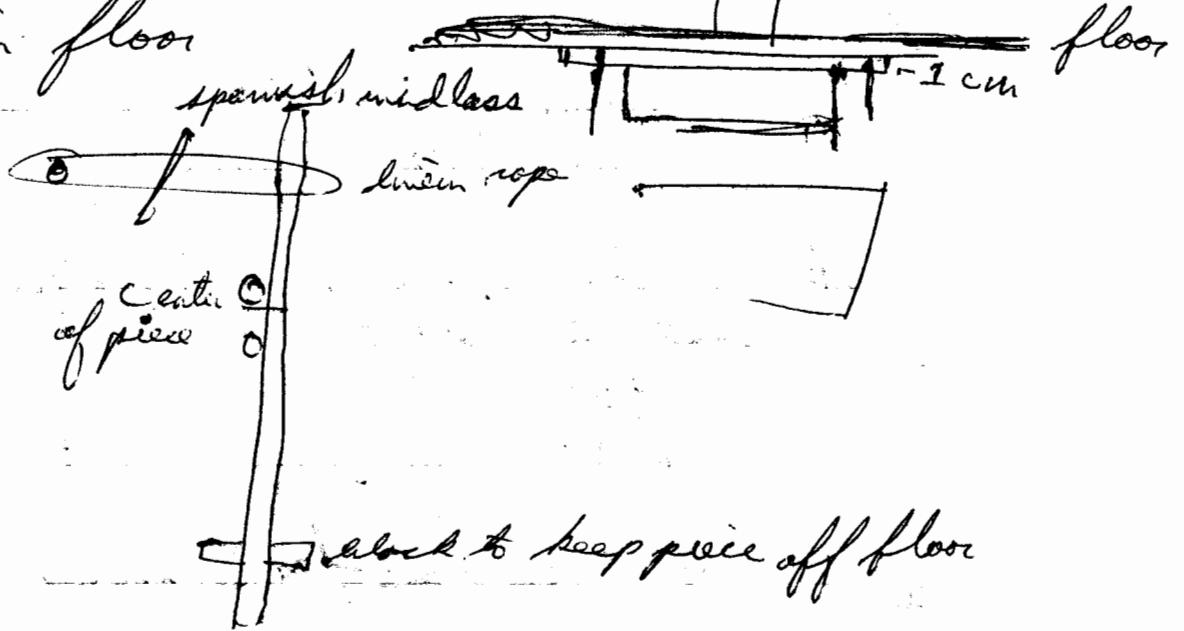 floor
floor
1 cm
spanish windlass
linen rope
Center
of piece
block to keep piece off floor